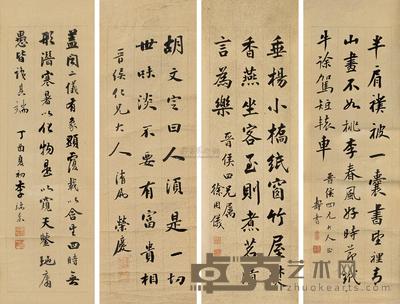 半肩襆被一囊書望裡青
山畫不如桃李春風好時節
牛徐駕短轅車
晋侯四兄大人
垂楊小橋紙窗竹屋焚
香燕坐客至則煮茗清
言為樂 晋侯四兄属
徐用儀
胡文定曰人須是一切
世味淡不要有富貴相
晋侯仁兄大人 榮慶
蓋聞二儀有象顯覆載以含生四時無
形潛寒暑以化物是以窺天鑒地庸
愚皆識其端 丁酉夏初李端